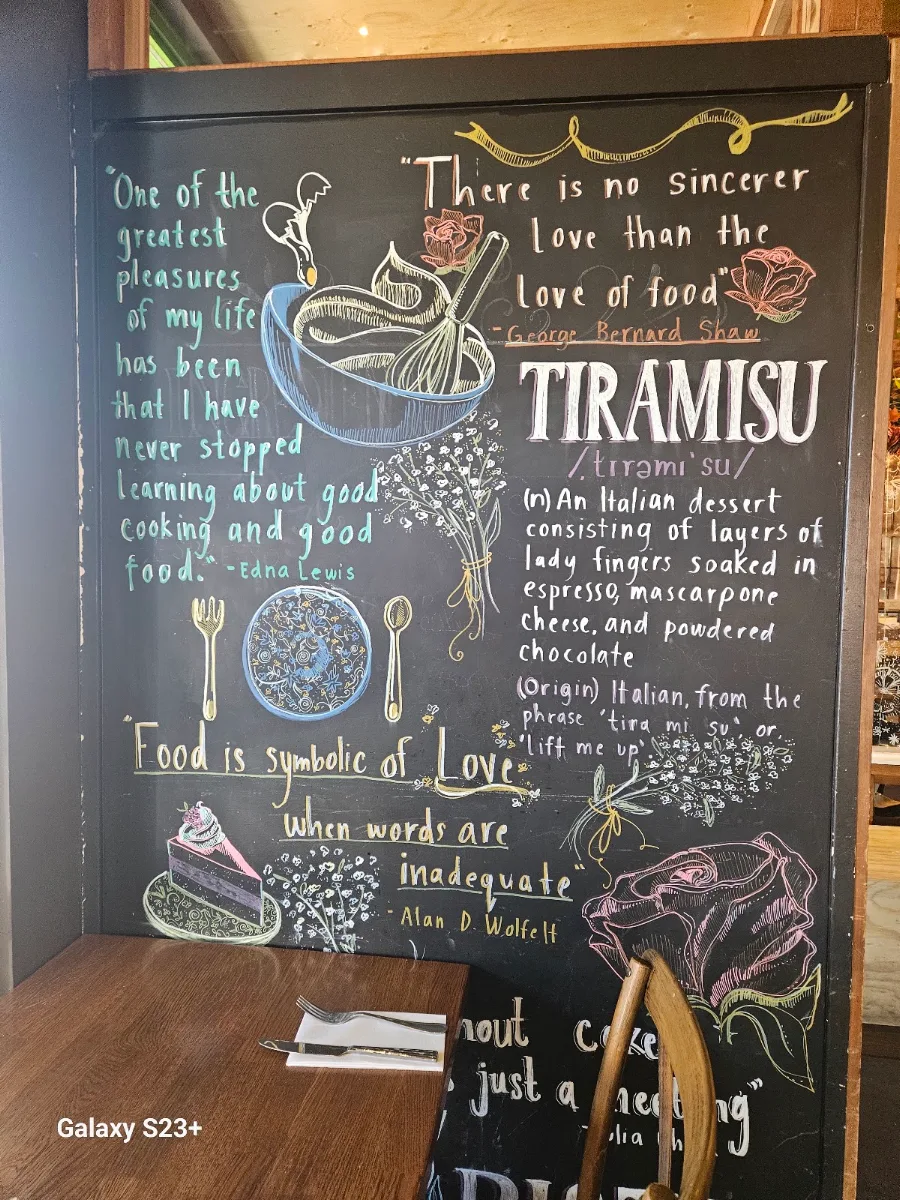 "One of the
greatest
pleasures
of my life
has been
that I have
never stopped
learning about good
cooking and good
food." -Edna Lewis
"There is no sincerer
love than the
love of food"
- George Bernard Shaw
TIRAMISU
/ˌtɪrəmɪˈsu/
(n) An Italian dessert
consisting of layers of
lady fingers soaked in
espresso, mascarpone
cheese, and powdered
chocolate
(Origin) Italian, from the
phrase 'tira mi su' or
'lift me up'
"Food is symbolic of Love
when words are
inadequate"
- Alan D. Wolfelt
just a
Galaxy S23+